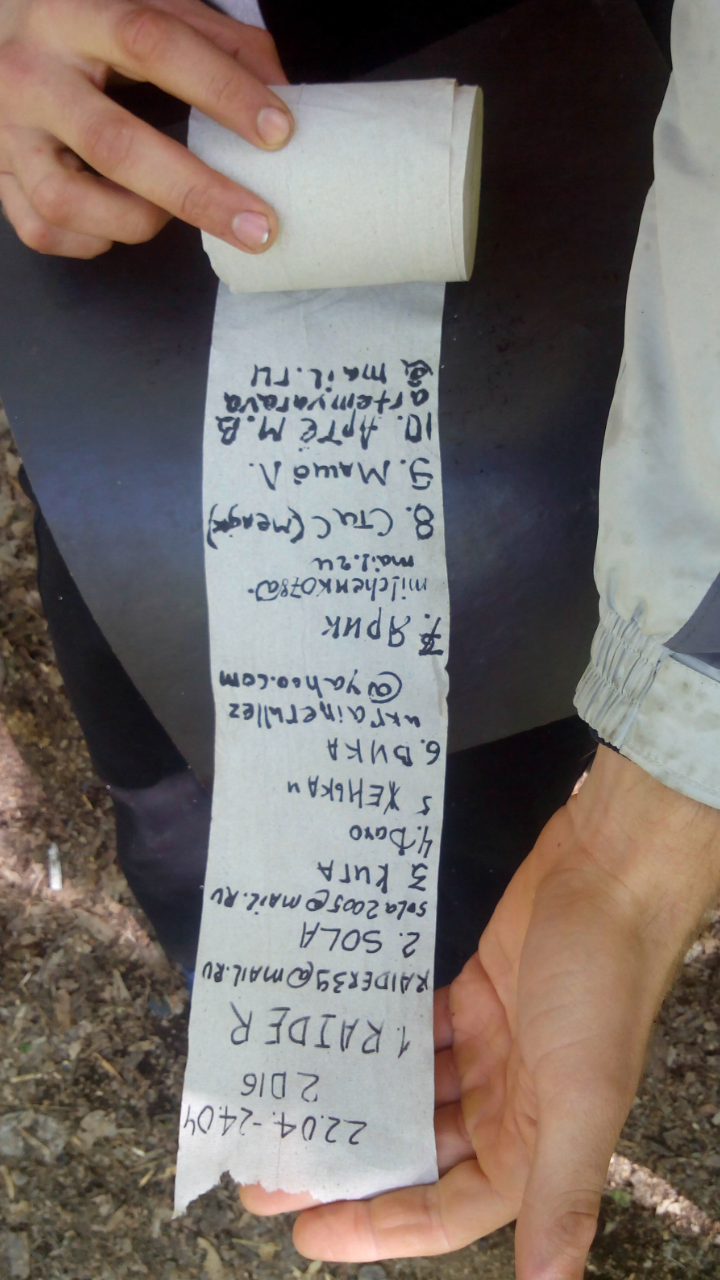 22.04.-24.04
2016
1. RAIDER
RAIDER39@MAIL.RU
2. SOLA
sola2005@MAIL.RU
3 КИГА
4. Daxo
5 ЖЕНЬКА и
6. ВИКА
ukrainerullez
@yahoo.com
7. Ярик
milchenko78@
8. Стас
9. Маша Л.
10. Артём.В.
artemyarava
@mail.ru